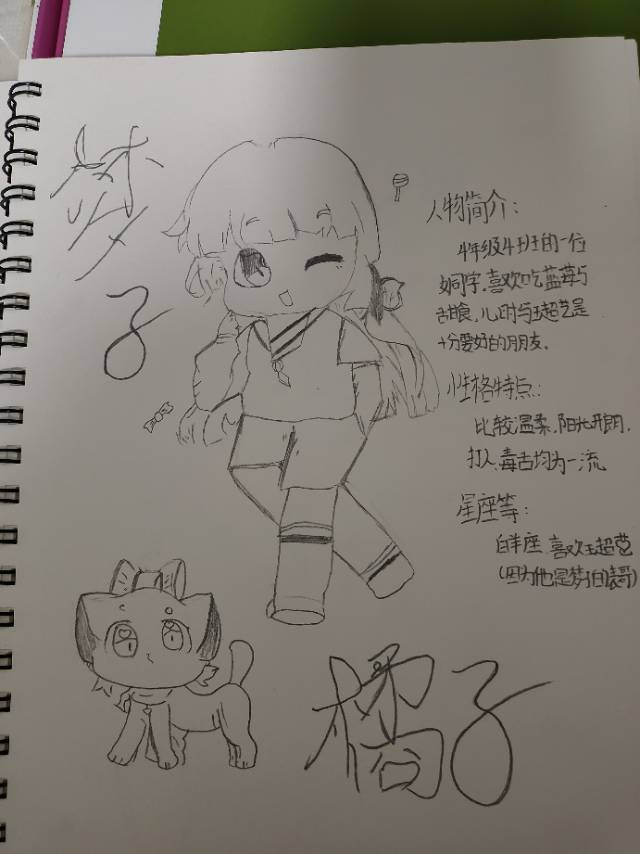 梦
子
人物简介：
4年级4班的一位
女同学，喜欢吃蓝莓与
甜食，儿时与王超艺是
十分要好的朋友。
性格特点：
比较温柔，阳光开朗，
打人、毒舌均为一流
星座等：
白羊座 喜欢王超艺
(因为他是梦子的表哥)
橘子